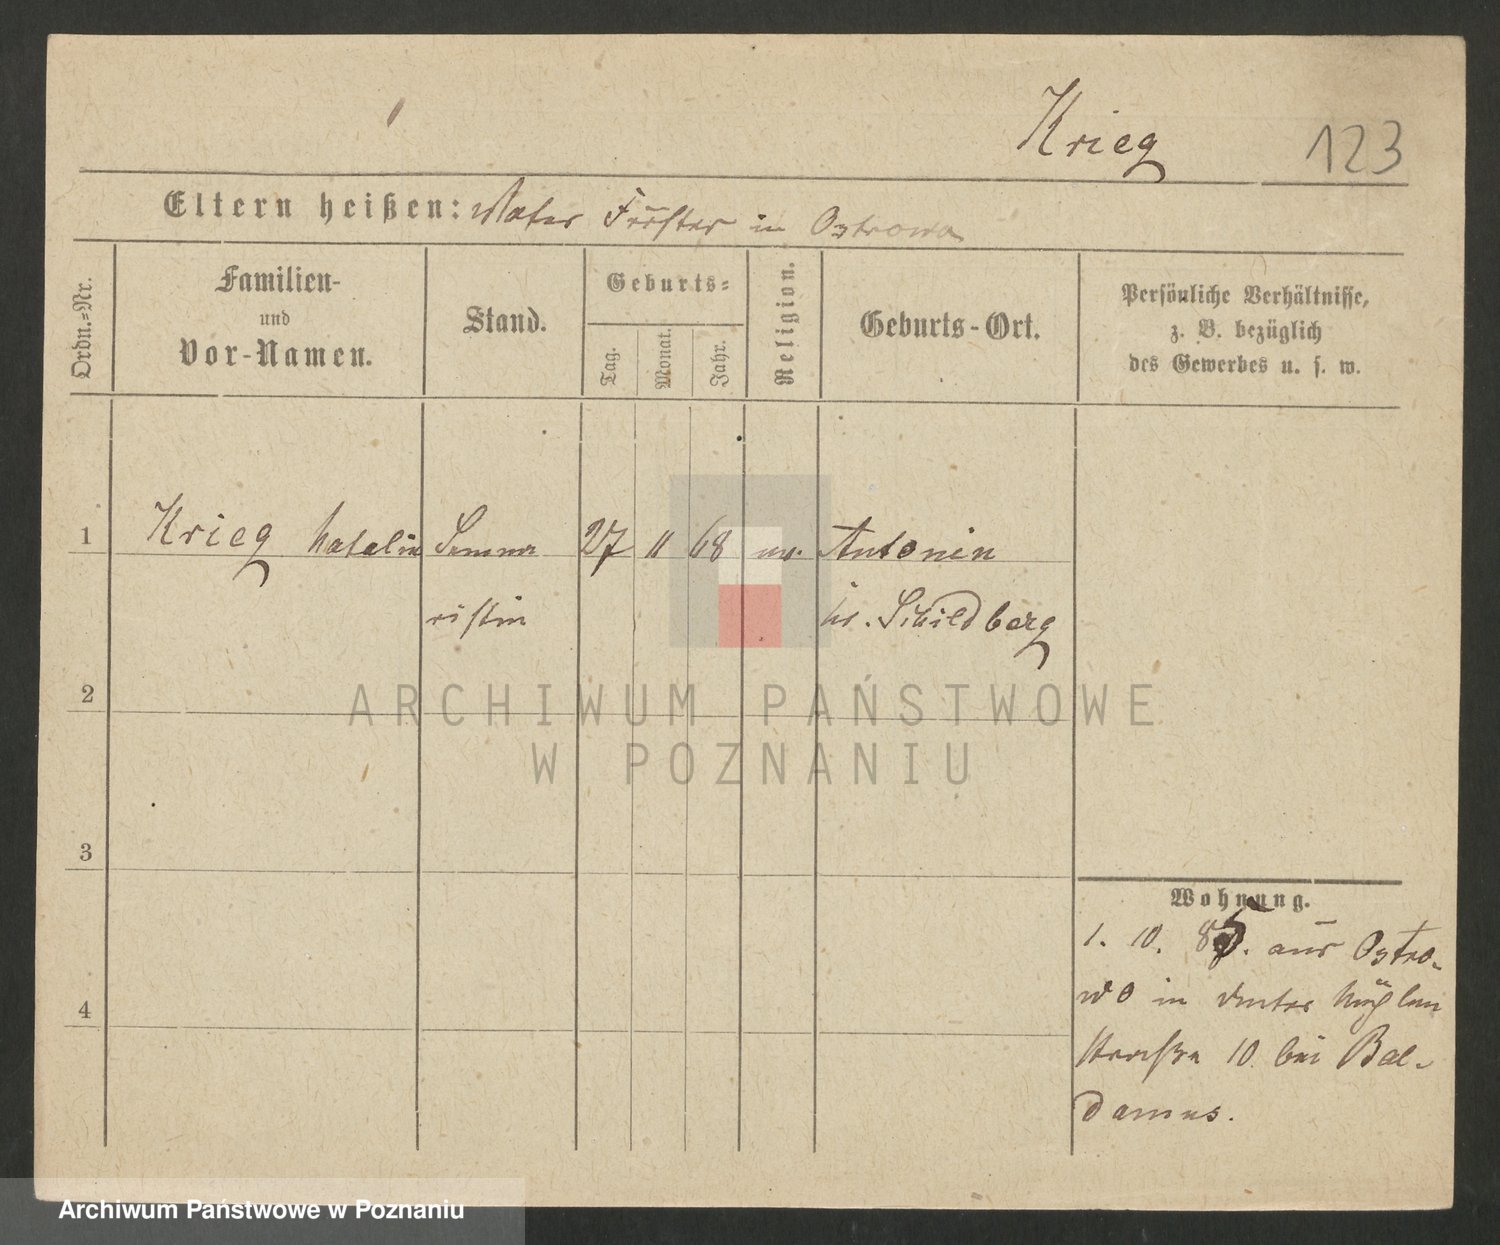 Krieg 123
Eltern heißen: Vater Förster in Ostrowo
Ordn.=Nr.
Familien-
und
Vor-Namen.
Stand.
Geburts=
Tag.
Monat.
Jahr.
Religion.
Geburts-Ort.
Persönliche Verhältnisse,
z. B. bezüglich
des Gewerbes u. s. w.
1 Krieg Natalie Semina 27 11 68 ev. Antonin
ristin kr. Schildberg
2
ARCHIWUM PAŃSTWOWE
W POZNANIU
3
Wohnung.
1. 10. 85. aus Ostro-
wo in Unter Mühlen
Straße 10 bei Bal-
damus.
4
Archiwum Państwowe w Poznaniu